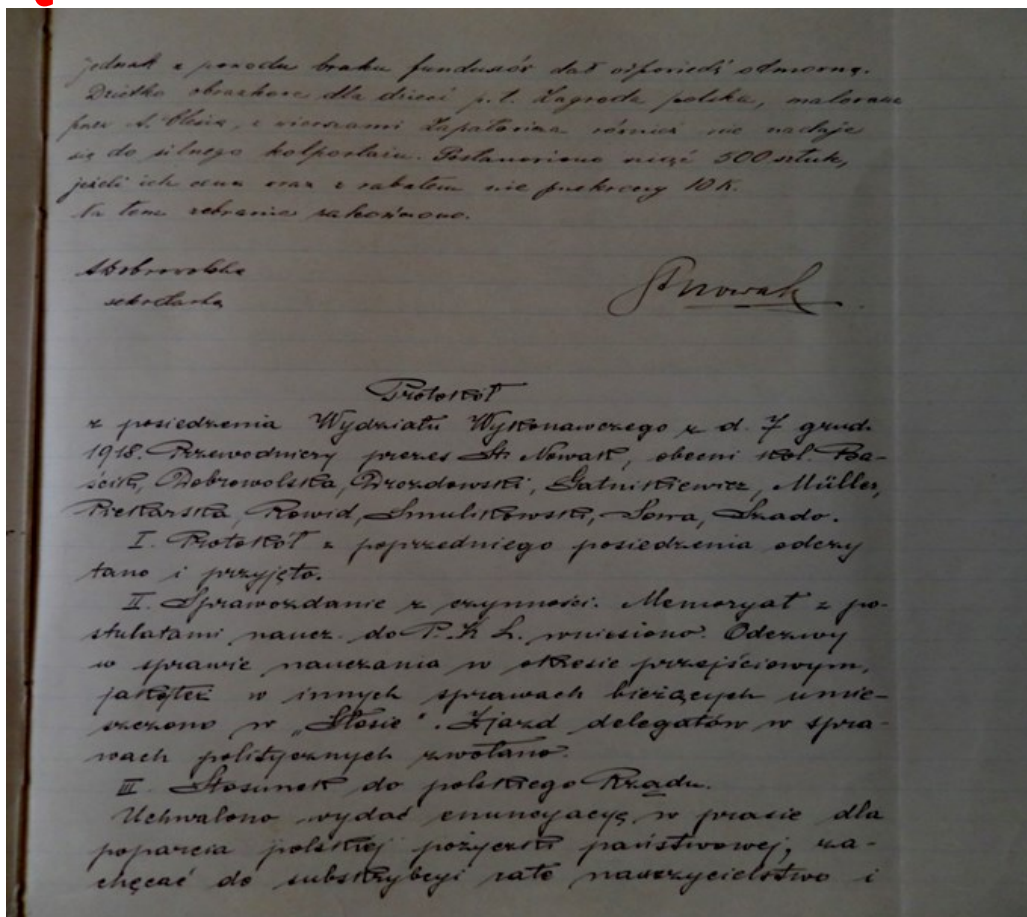 jednak z powodu braku funduszów dał odpowiedź odmowną.
Dziełko obrazkowe dla dzieci p. t. Zagroda polska, malowane
przez A. z wierszami również nie nadaje
się do silnego kolportażu. Postanowiono wziąć 500 sztuk,
jeżeli ich cena wraz z rabatem nie przekroczy 10 K.
Na tem zebranie zakończono.
ADobrowolska
sekretarka
StNowak
Protokół
z posiedzenia Wydziału Wykonawczego z d. 7 grud.
1918. Przewodniczy prezes St. Nowak, obecni kol. Ba-
ścik, Dobrowolska, Drozdowski, Gatnikiewicz, Müller,
Piekarska, Rowid, Smulikowski, Sowa, Szado.
I. Protokół z poprzedniego posiedzenia odczy
tano i przyjęto.
II. Sprawozdanie z czynności. Memoryał z po-
stulatami naucz. do P. K L. wniesiono. Odezwy
w sprawie nauczania w okresie przejściowym,
jakoteż w innych sprawach bieżących umie-
szczono w „Głosie". Zjazd delegatów w spra-
wach politycznych zwołano.
III. Stosunek do polskiego Rządu.
Uchwalono wydać enuncyacyę w prasie dla
poparcia polskiej pożyczki państwowej, za-
chęcać do subskrybcyi całe nauczycielstwo i